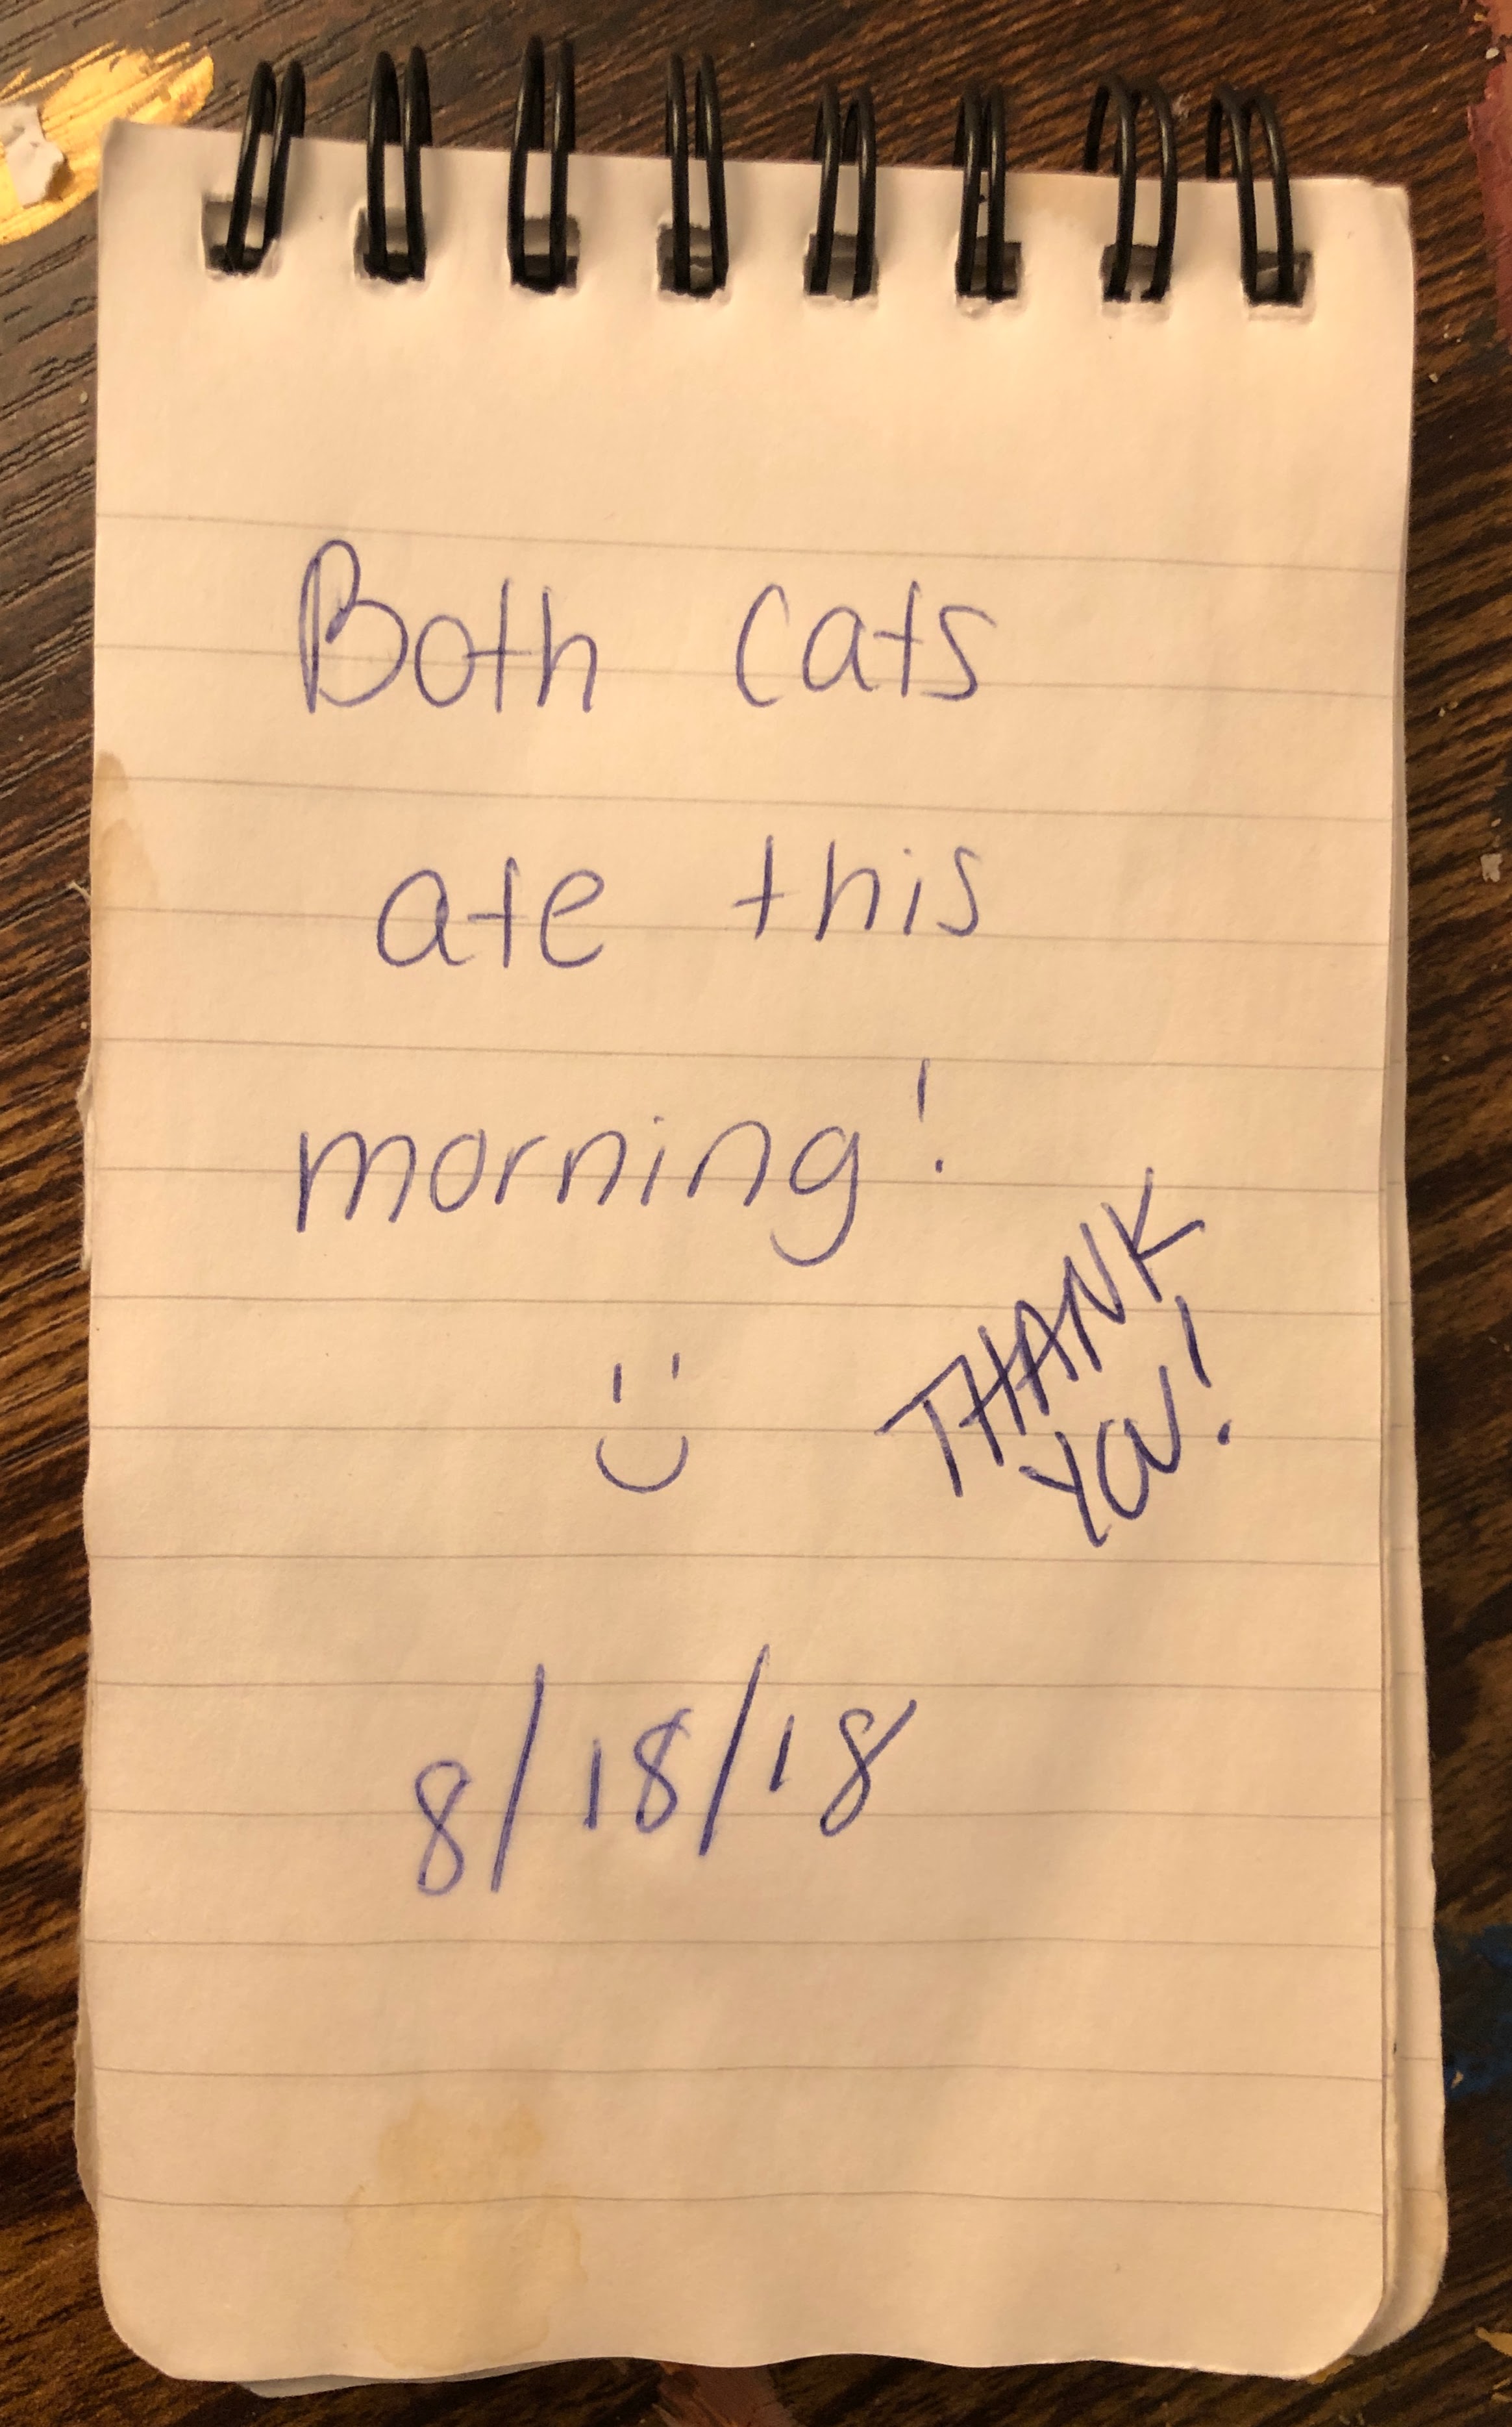 Both cats
ate this
morning!
THANK
YOU!
8/18/18